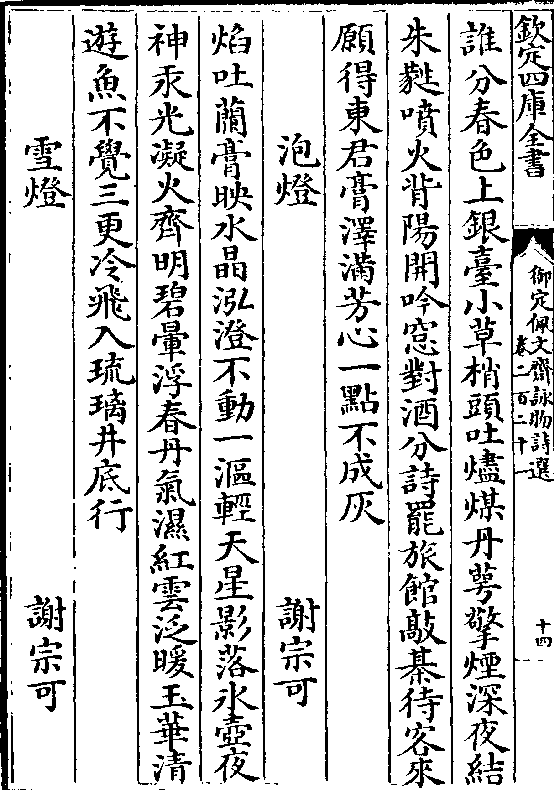 欽定四庫全書
御定佩文齋詠物詩選
卷二百二十一
十四
誰分春色上銀臺小草梢頭吐燼煤丹萼擎煙深夜結
朱蕤噴火背陽開吟窓對酒分詩罷旅館敲棊待客來
願得東君膏澤滿芳心一點不成灰
泡燈 謝宗可
焰吐蘭膏映水晶泓澄不動一漚輕天星影落氷壺夜
神汞光凝火齊明碧暈浮春丹氣濕紅雲泛暖玉華清
遊魚不覺三更冷飛入琉璃井底行
雪燈 謝宗可